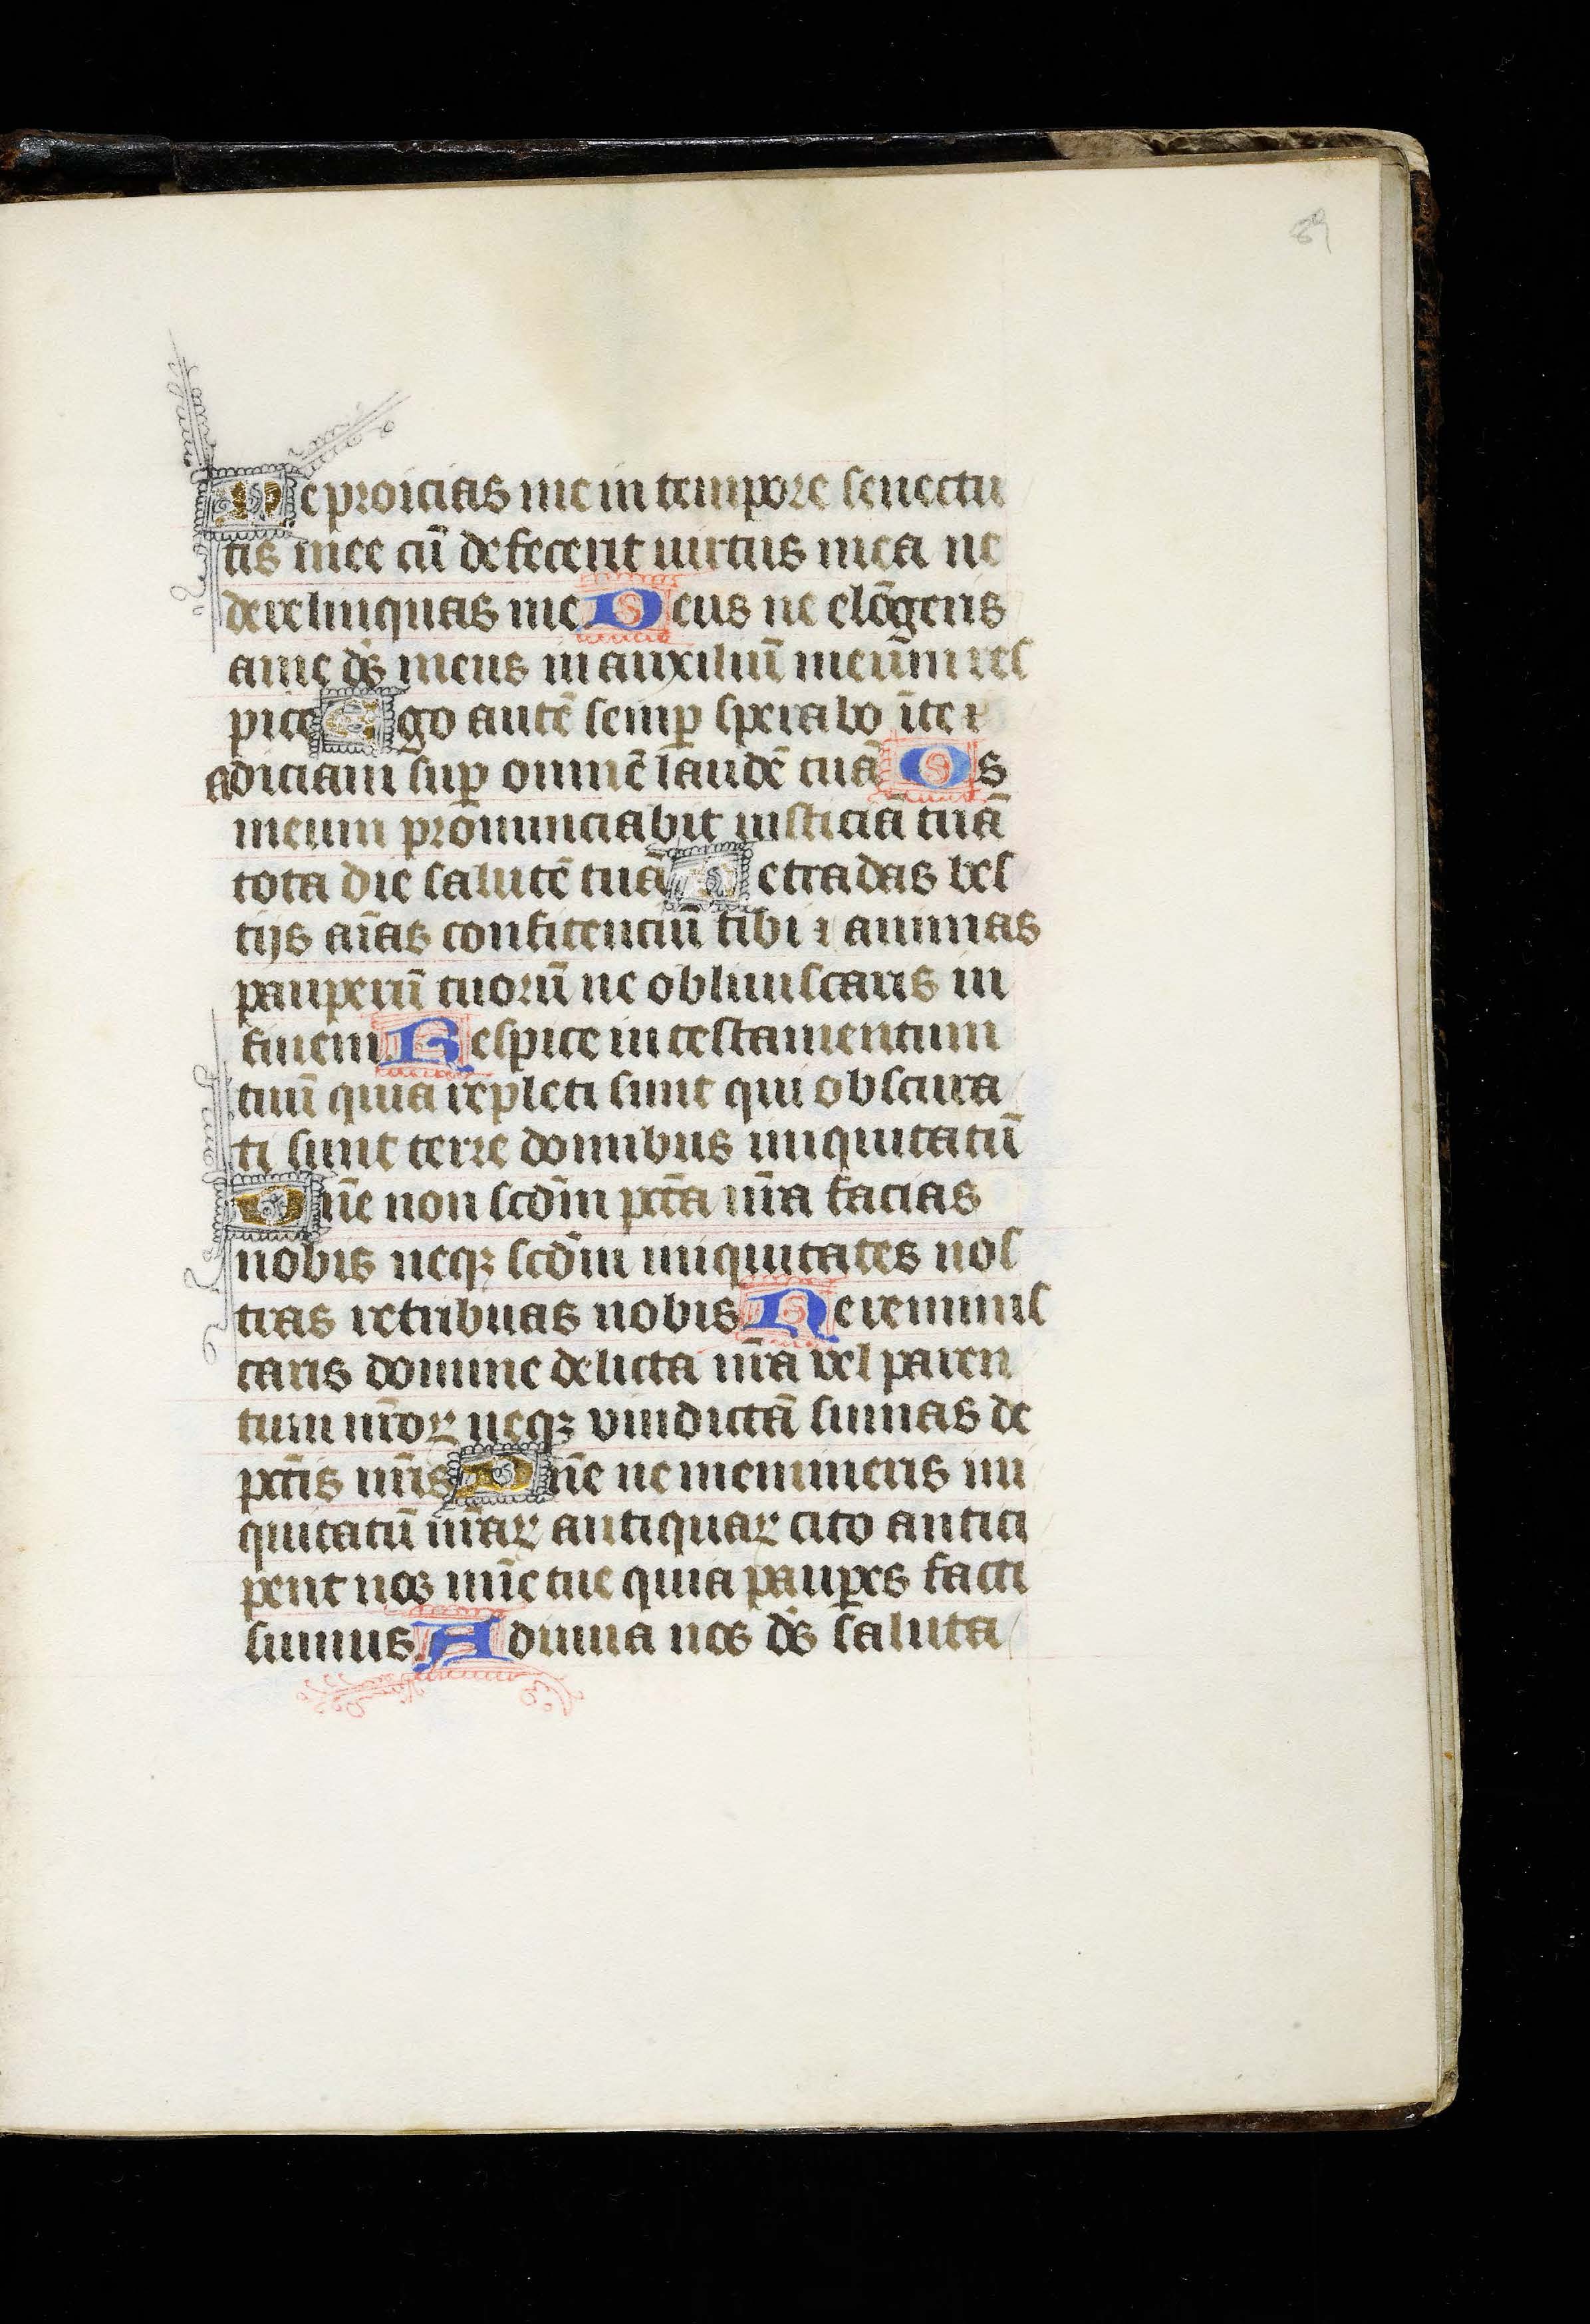 89
Ne proicias me in tempore senectu
tis mee cū defecerit uirtus mea ne
derelinquas me Deus ne elōgeris
a me ds̄ meus in auxiliū meūm res
pice Ego autē semꝑ sperabo īte ⁊
adiciam suꝑ omnē laudē tuā Os
meum pronunciabit iusticiā tuā
tota die salutē tuā Ne tradas bes
tijs aīas confitenciū tibi ⁊ animas
pauperū tuorū ne obliuiscaris in
finem Respice in testamentum
tuū quia repleti sunt qui obscura
ti sunt terre domibus iniquitatū
Dn̄e non scdm̄ pctā nr̄a facias
nobis neqꝫ scdm̄ iniquitates nos
tras retribuas nobis Ne reminis
caris domine delicta nr̄a vel paren
tum nr̄oꝝ neqꝫ vindictā sumas de
pctīs nr̄is Dn̄e ne memineris ini
quitatū nr̄aꝝ antiquaꝝ cito antici
pent nos mīe tue quia pauꝑes facti
sumus Adiuua nos ds̄ saluta